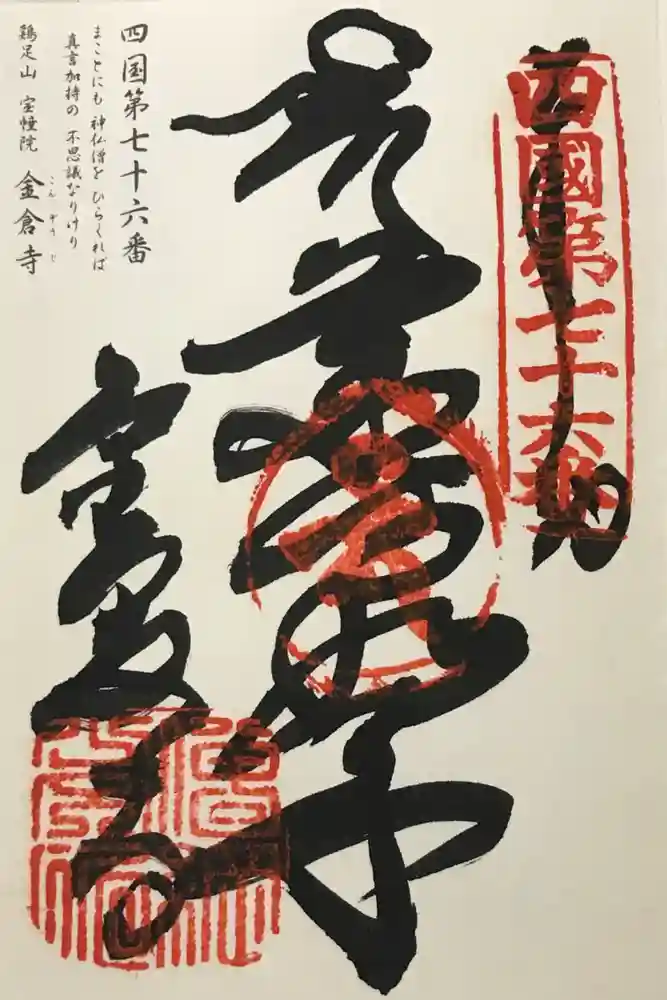 奉納
四國第七十六番
四国第七十六番
まことにも 神仏僧を ひらくれば
真言加持の 不思議なりけり
鶏足山 宝幢院 金倉寺
こん ぞう じ
金倉寺